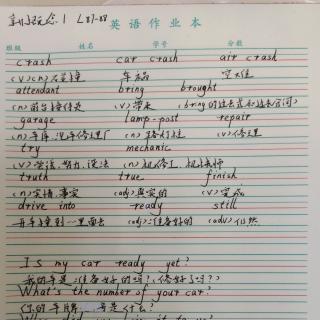 新概念1 L87-88
英语作业本
班级 姓名 学号 分数
crash car crash air crash
(v)(n) 车祸 空难
attendant bring brought
(n)接待员 (v)带来 (bring的过去式和过去分词)
garage lamp-post repair
(n)车库,汽车修理厂 (n)路灯柱 (v)修理
try mechanic
(v)尝试,努力,设法 (n)机修工,机械师
truth true finish
(n)实情,事实 (adj)真实的 (v)完成
drive into ready still
开车撞到 里面去 (adj)准备好的 (adv)仍然
Is my car ready yet?
我的车是准备好的吗?(修好了吗?)
What's the number of your car?
你的车牌号是什么?